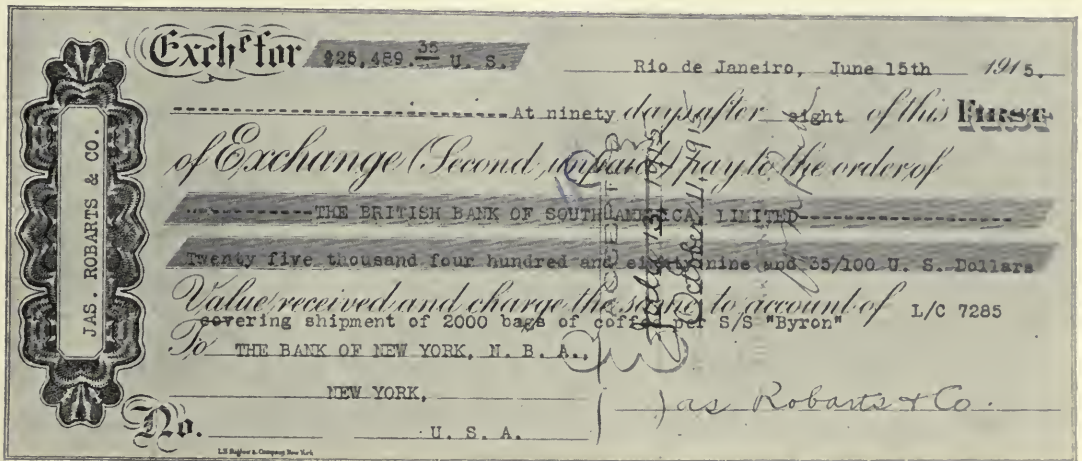 JAS. ROBARTS & CO.
Exch<sup>e</sup> for $25,489.35 U. S.
Rio de Janeiro, June 15th 1915.
At ninety days after sight of this FIRST
of Exchange (Second unpaid) pay to the order of
THE BRITISH BANK OF SOUTH AMERICA, LIMITED
Twenty five thousand four hundred and eighty nine and 35/100 U. S. Dollars
Value received and charge the same to account of L/C 7285
covering shipment of 2000 bags of coffee per S/S "Byron"
To THE BANK OF NEW YORK, N. B. A.,
NEW YORK,
U. S. A.
No.
Jas Robarts & Co.
ACCEPTED
July 13, 1915
October 11, 1915